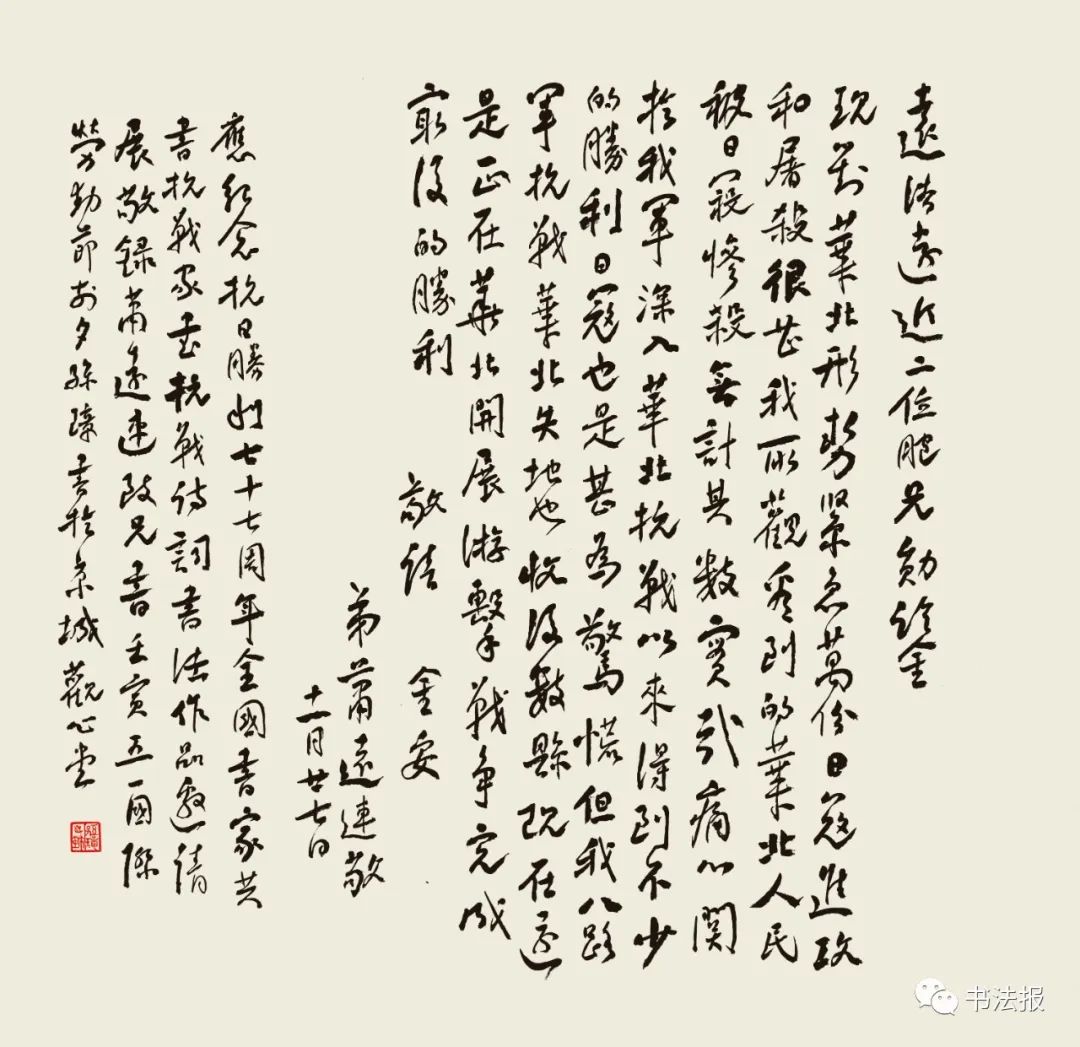 遠隆遠近二位胞兄勛鑒
現對華北形勢緊急萬份日寇進攻
和屠殺很甚我所觀看到的華北人民
被日寇慘殺無計其數實引痛心関
於我軍深入華北抗戰以來得到不少
的勝利日寇也是甚為驚慌但我八路
軍抗戰華北失地也收復數縣現在還
是正在華北開展游擊戰争完成
最後的勝利
敬請 金安
弟蕭遠連敬
十一月廿七日
應紀念抗日勝利七十七周年全國書家共
書抗戰家書抗戰詩詞書法作品邀請
展敬録蕭遠連致兄書壬寅五一國際
勞動節前夕孫璋書於京城觀心堂
书法报